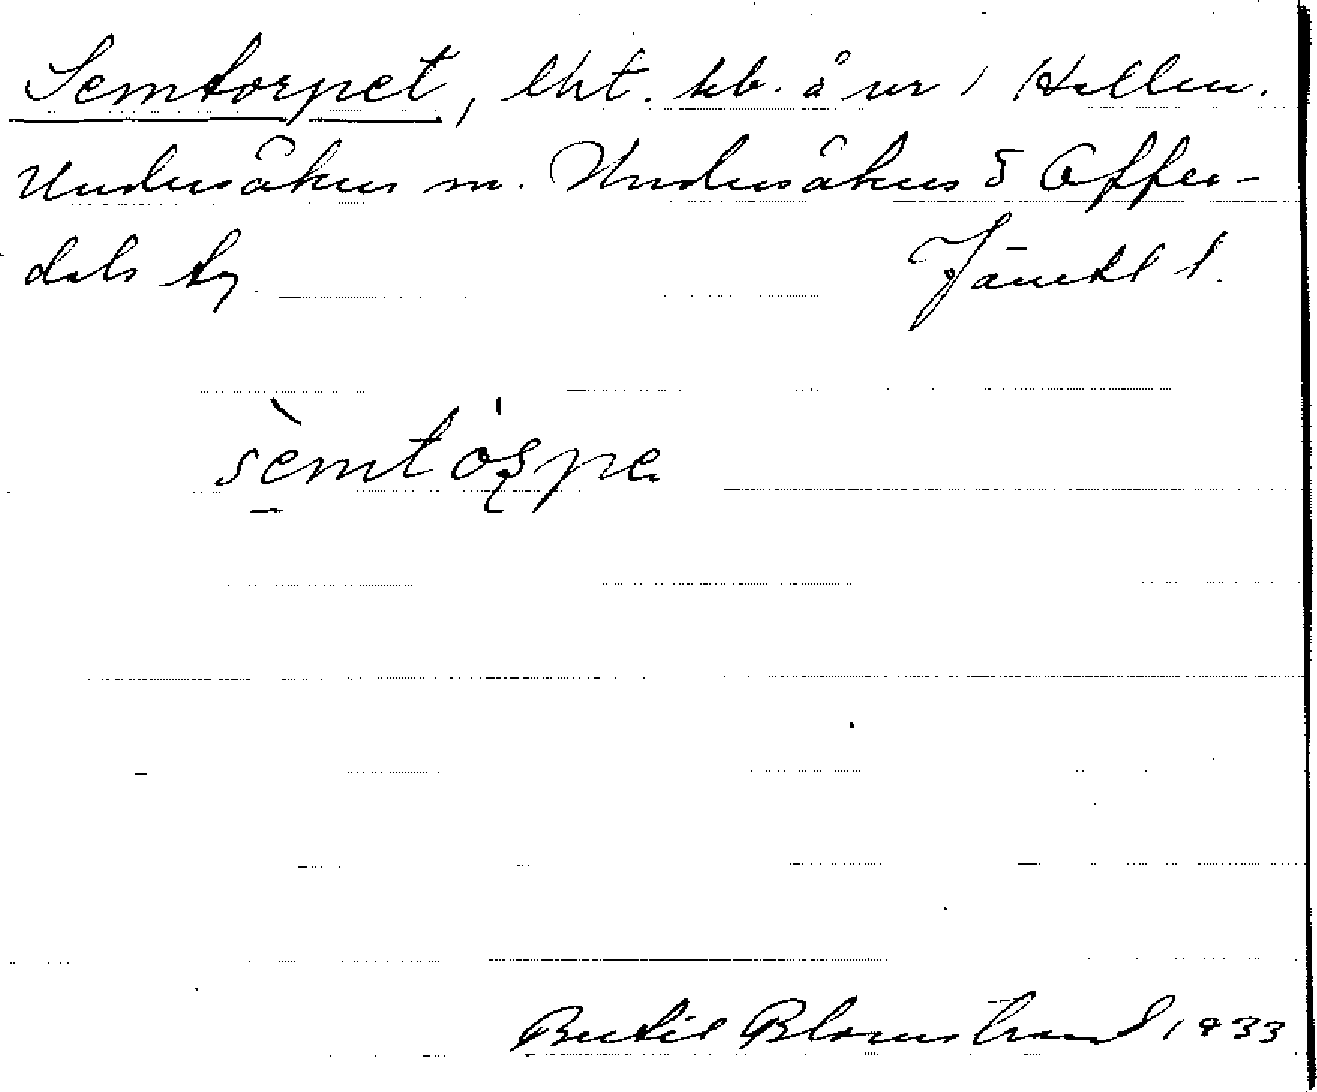 Semtorpet, lht. hb. å nr 1 Hållen.
Undersåkers sn. Undersåkers o Offer-
dals tg. Jämtl l.
sèmtórpe
Bertil Blomstrand 1933